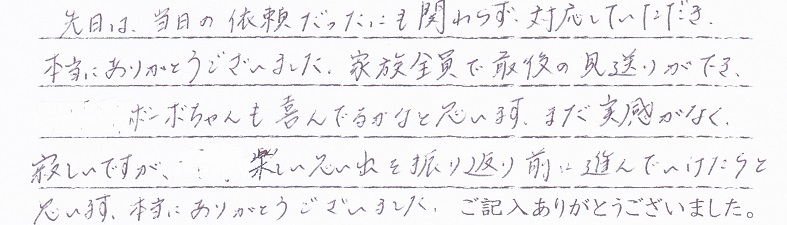 先日は、当日の依頼だったにも関わらず、対応していただき、
本当にありがとうございました。家族全員で最後の見送りができ、
ボンボちゃんも喜んでるかなと思います。まだ実感がなく、
寂しいですが、楽しい思い出を振り返り前に進んでいけたらと
思います。本当にありがとうございました。ご記入ありがとうございました。